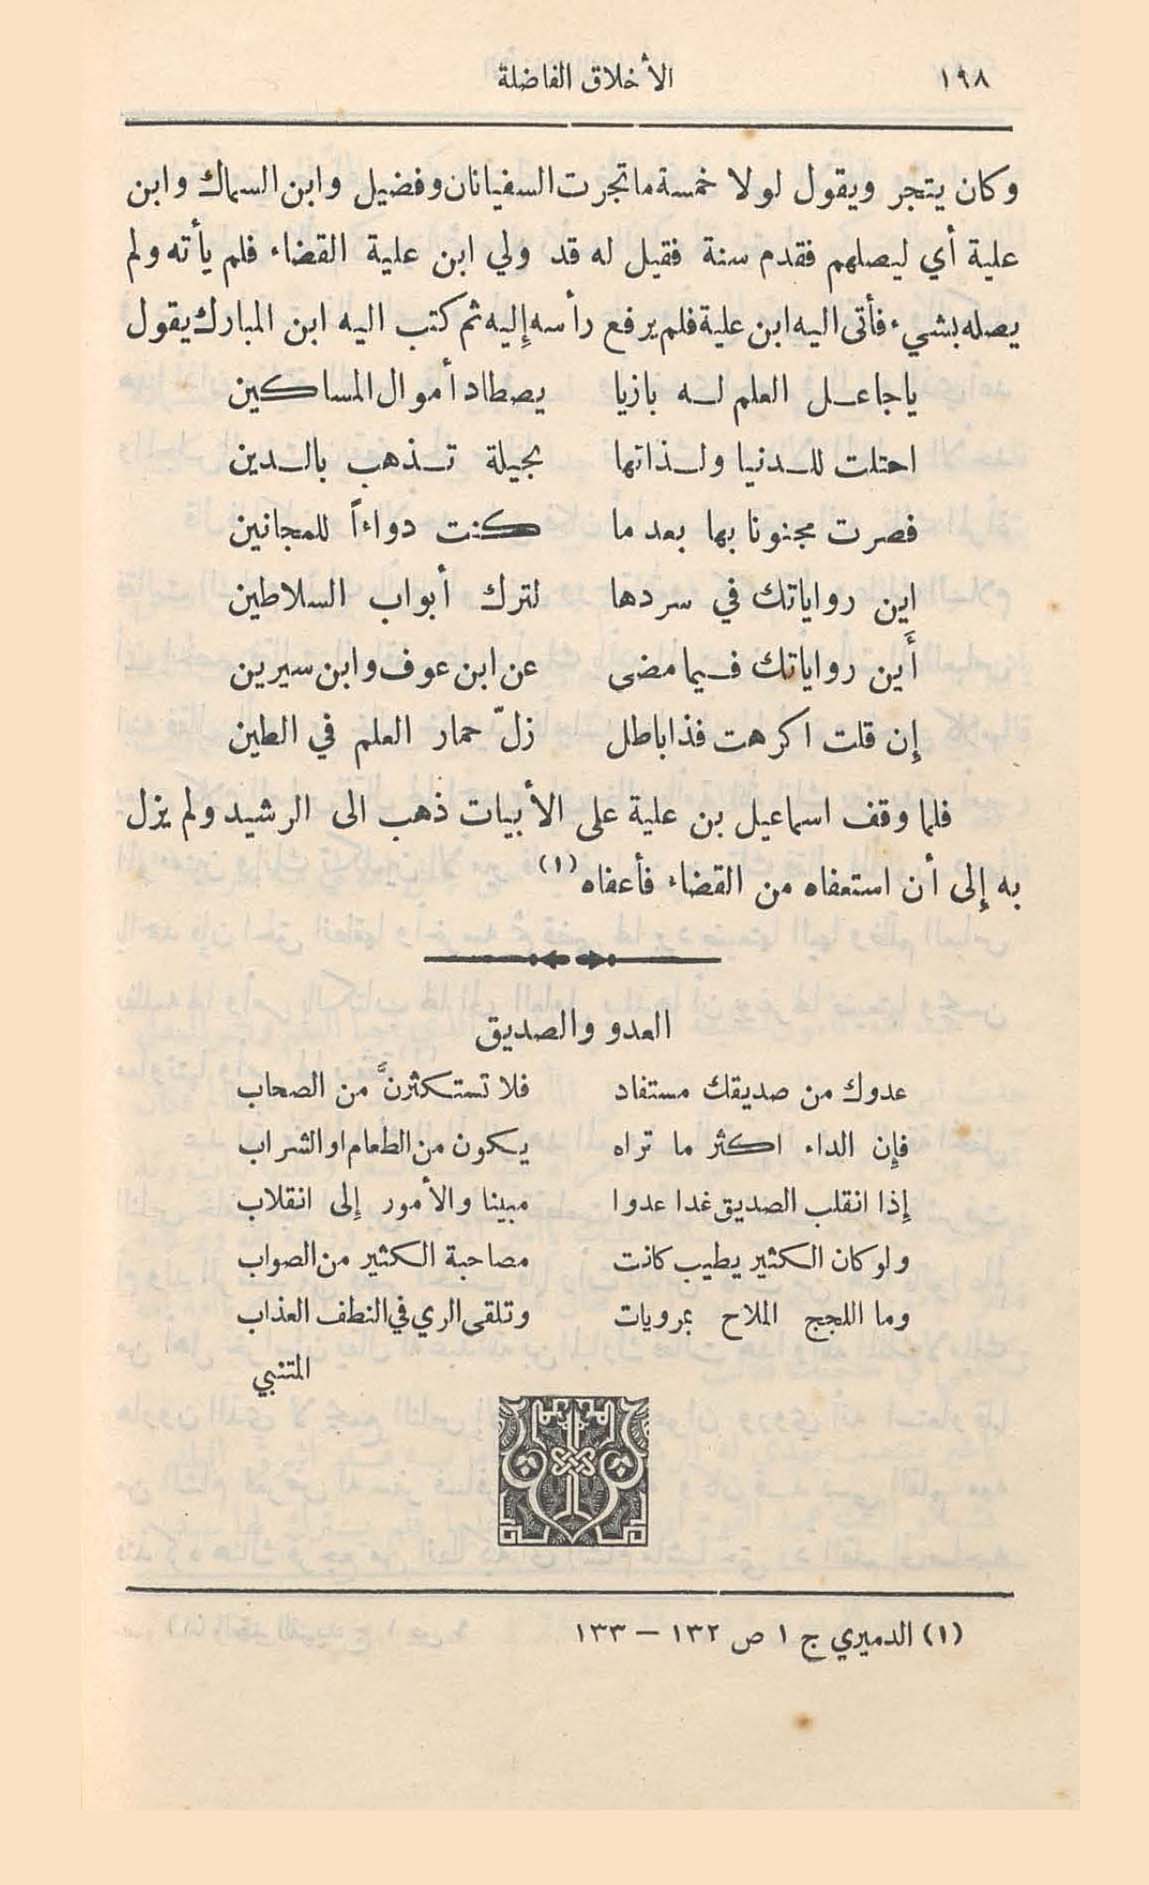 ١٩٨ الأخلاق الفاضلة
وكان يتجر ويقول لولا خمسة ما تجرت السفيانان وفضيل وابن السماك وابن
علية أي ليصلهم فقدم سنة فقيل له قد ولي ابن علية القضاء فلم يأته ولم
يصله بشيء فأتى اليه ابن علية فلم يرفع رأسه إليه ثم كتب اليه ابن المبارك يقول
يا جاعل العلم له بازيا يصطاد أموال المساكين
احتلت للدنيا ولذاتها بحيلة تذهب بالدين
فصرت مجنونا بها بعد ما كنت دواءاً للمجانين
اين رواياتك في سردها لترك أبواب السلاطين
أين رواياتك فيما مضى عن ابن عوف وابن سيرين
إن قلت اكرهت فذا باطل زلّ حمار العلم في الطين
فلما وقف اسماعيل بن علية على الأبيات ذهب الى الرشيد ولم يزل
به إلى أن استعفاه من القضاء فأعفاه (١)
العدو والصديق
عدوك من صديقك مستفاد فلا تستكثرنَّ من الصحاب
فإن الداء اكثر ما تراه يكون من الطعام او الشراب
إذا انقلب الصديق غدا عدوا مبينا والأمور إلى انقلاب
ولو كان الكثير يطيب كانت مصاحبة الكثير من الصواب
وما اللجج الملاح بمرويات وتلقى الري في النطف العذاب
المتنبي
(١) الدميري ج ١ ص ١٣٢ – ١٣٣